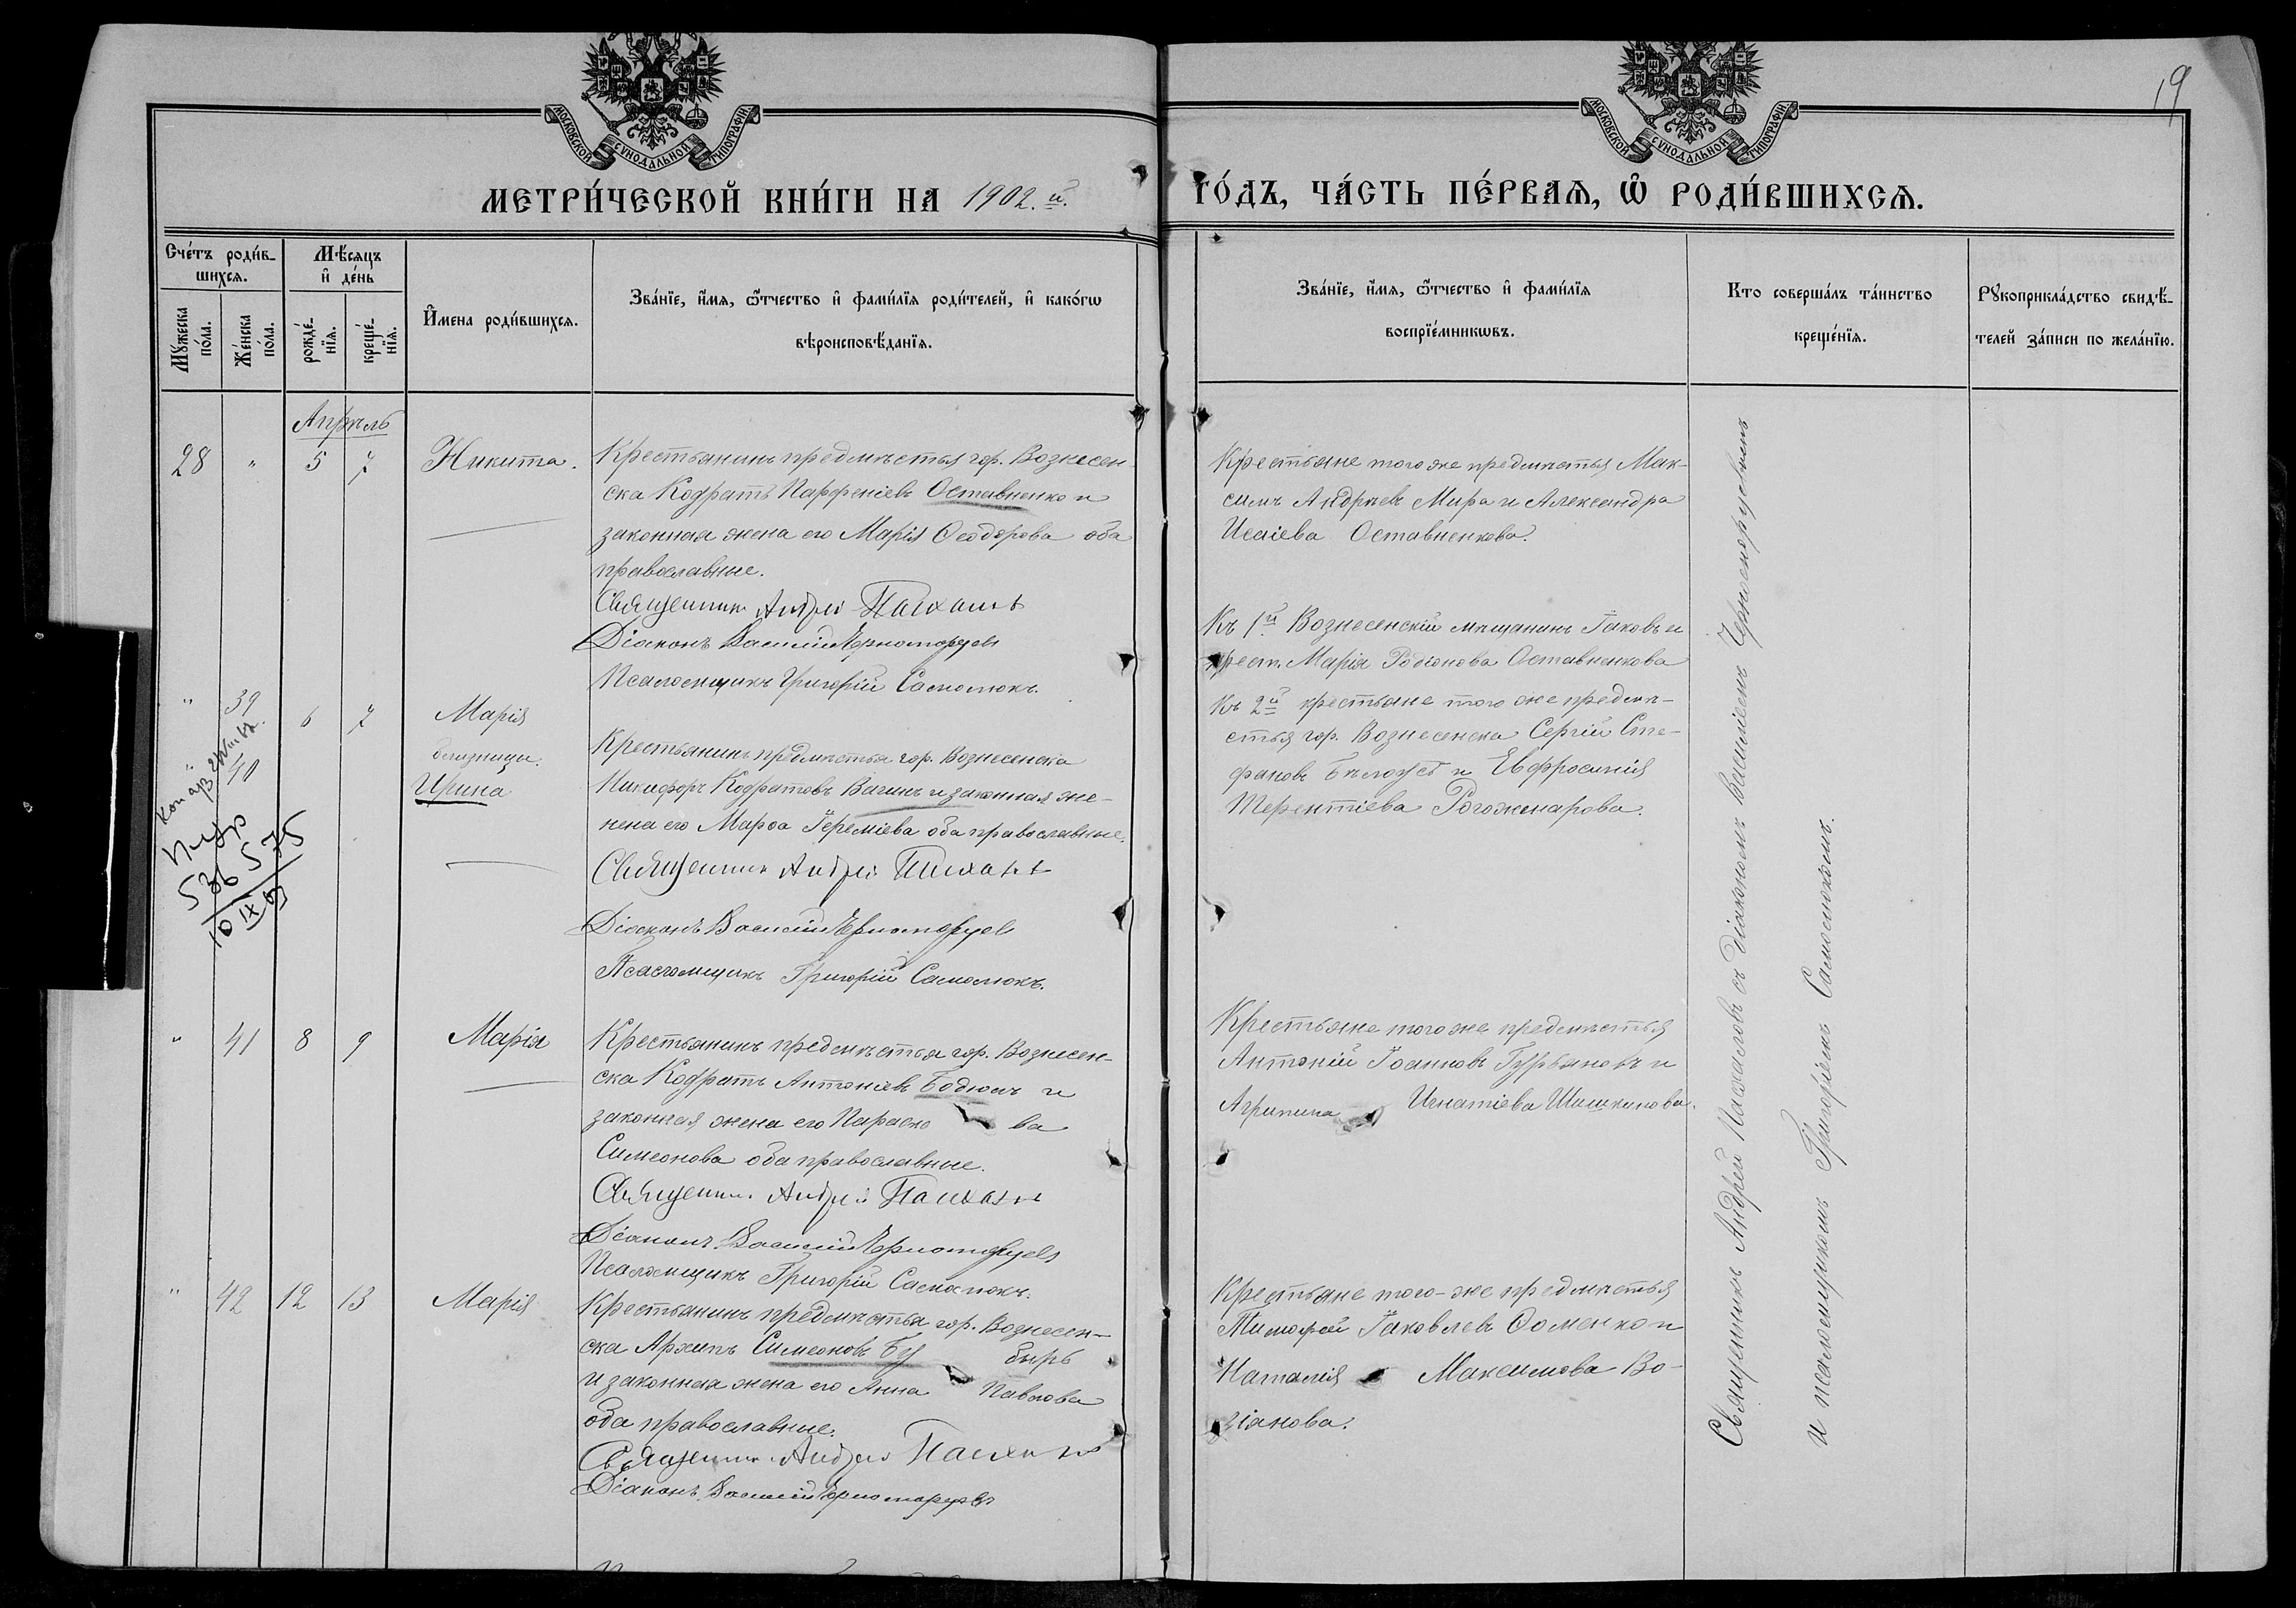 19
МОСКОВСКОЙ СѴНОДАЛЬНОЙ ТИПОГРАФІИ.
МОСКОВСКОЙ СѴНОДАЛЬНОЙ ТИПОГРАФІИ.
МЕТРИ́ЧЕСКОЙ КНИ́ГИ НА 1902.й. ГО́ДЪ, ЧА́СТЬ ПЕ́РВАѦ, Ѿ РОДИ́ВШИХСѦ.
Сче́тъ роди́в-
шихсѧ.
Мꙋ́жеска по́ла.
Же́нска по́ла.
Мѣ́сѧцъ
и҆ де́нь
рожде́-
нїѧ.
креще́-
нїѧ.
И҆мена роди́вшихсѧ.
Зва́нїе, и҆́мѧ, ѻ҆́тчество и҆ фами́лїѧ роди́телей, и҆ како́гѡ
вѣроисповѣ́данїѧ.
Зва́нїе, и҆́мѧ, ѻ҆́тчество и҆ фами́лїѧ
воспрїе́мникѡвъ.
Кто соверша́лъ та́инство
креще́нїѧ.
Рꙋкоприкла́дство свидѣ́-
телей за́писи по жела́нїю.
Апрѣль
28 " 5 7 Никита.
Крестьянинъ предмѣстья гор. Вознесен-
ска Кодратъ Парфеніевъ Оставненко и
законная жена его Марія Ѳеодорова оба
православные.
Священникъ Андрей Пасхаловъ
Діаконъ Василій Черноморцевъ
Псаломщикъ Григорій Самолюкъ.
Крестьяне того же предмѣстья Мак-
симъ Андреевъ Мира и Александра
Исаіева Оставненкова.
" 39 6 7 Марія
близнецы.
" 40 Ирина
536575
10 IX
Крестьянинъ предмѣстья гор. Вознесенска
Никифоръ Кодратовъ Вагинъ и законная же-
нена его Марѳа Іереміева оба православные.
Священникъ Андрей Пасхаловъ
Діаконъ Василій Черноморцевъ
Псаломщикъ Григорій Самолюкъ.
Къ 1й Вознесенскій мѣщанинъ Іаковъ и
крест. Марія Родіонова Оставненкова
Къ 2й крестьяне того же предмѣ-
стья гор. Вознесенска Сергій Сте-
фановъ Бѣлоусъ и Евфросинія
Терентіева Рогожнарова.
" 41 8 9 Марія
Крестьянинъ предмѣстья гор. Вознесен-
ска Кодратъ Антоніевъ Бодюлъ и
законная жена его Параске ва
Симеонова оба православные.
Священникъ Андрей Пасхаловъ
Діаконъ Василій Черноморцевъ
Псаломщикъ Григорій Самолюкъ.
Крестьяне того же предмѣстья
Антоній Іоанновъ Гурьяновъ и
Агрипина Игнатіева Шишкинова.
" 42 12 13 Марія
Крестьянинъ предмѣстья гор. Вознесен-
ска Архипъ Симеоновъ Бу быръ
и законная жена его Анна Павлова
оба православные.
Священникъ Андрей Пасхаловъ
Діаконъ Василій Черноморцевъ
Крестьяне того-же предмѣстья
Тимофей Іаковлевъ Ѳоменко и
Наталія Максимова Во-
зіанова.
Священникъ Андрей Пасхаловъ съ діакономъ Василіемъ Черноморцевымъ
и псаломщикомъ Григоріемъ Самолюкомъ.